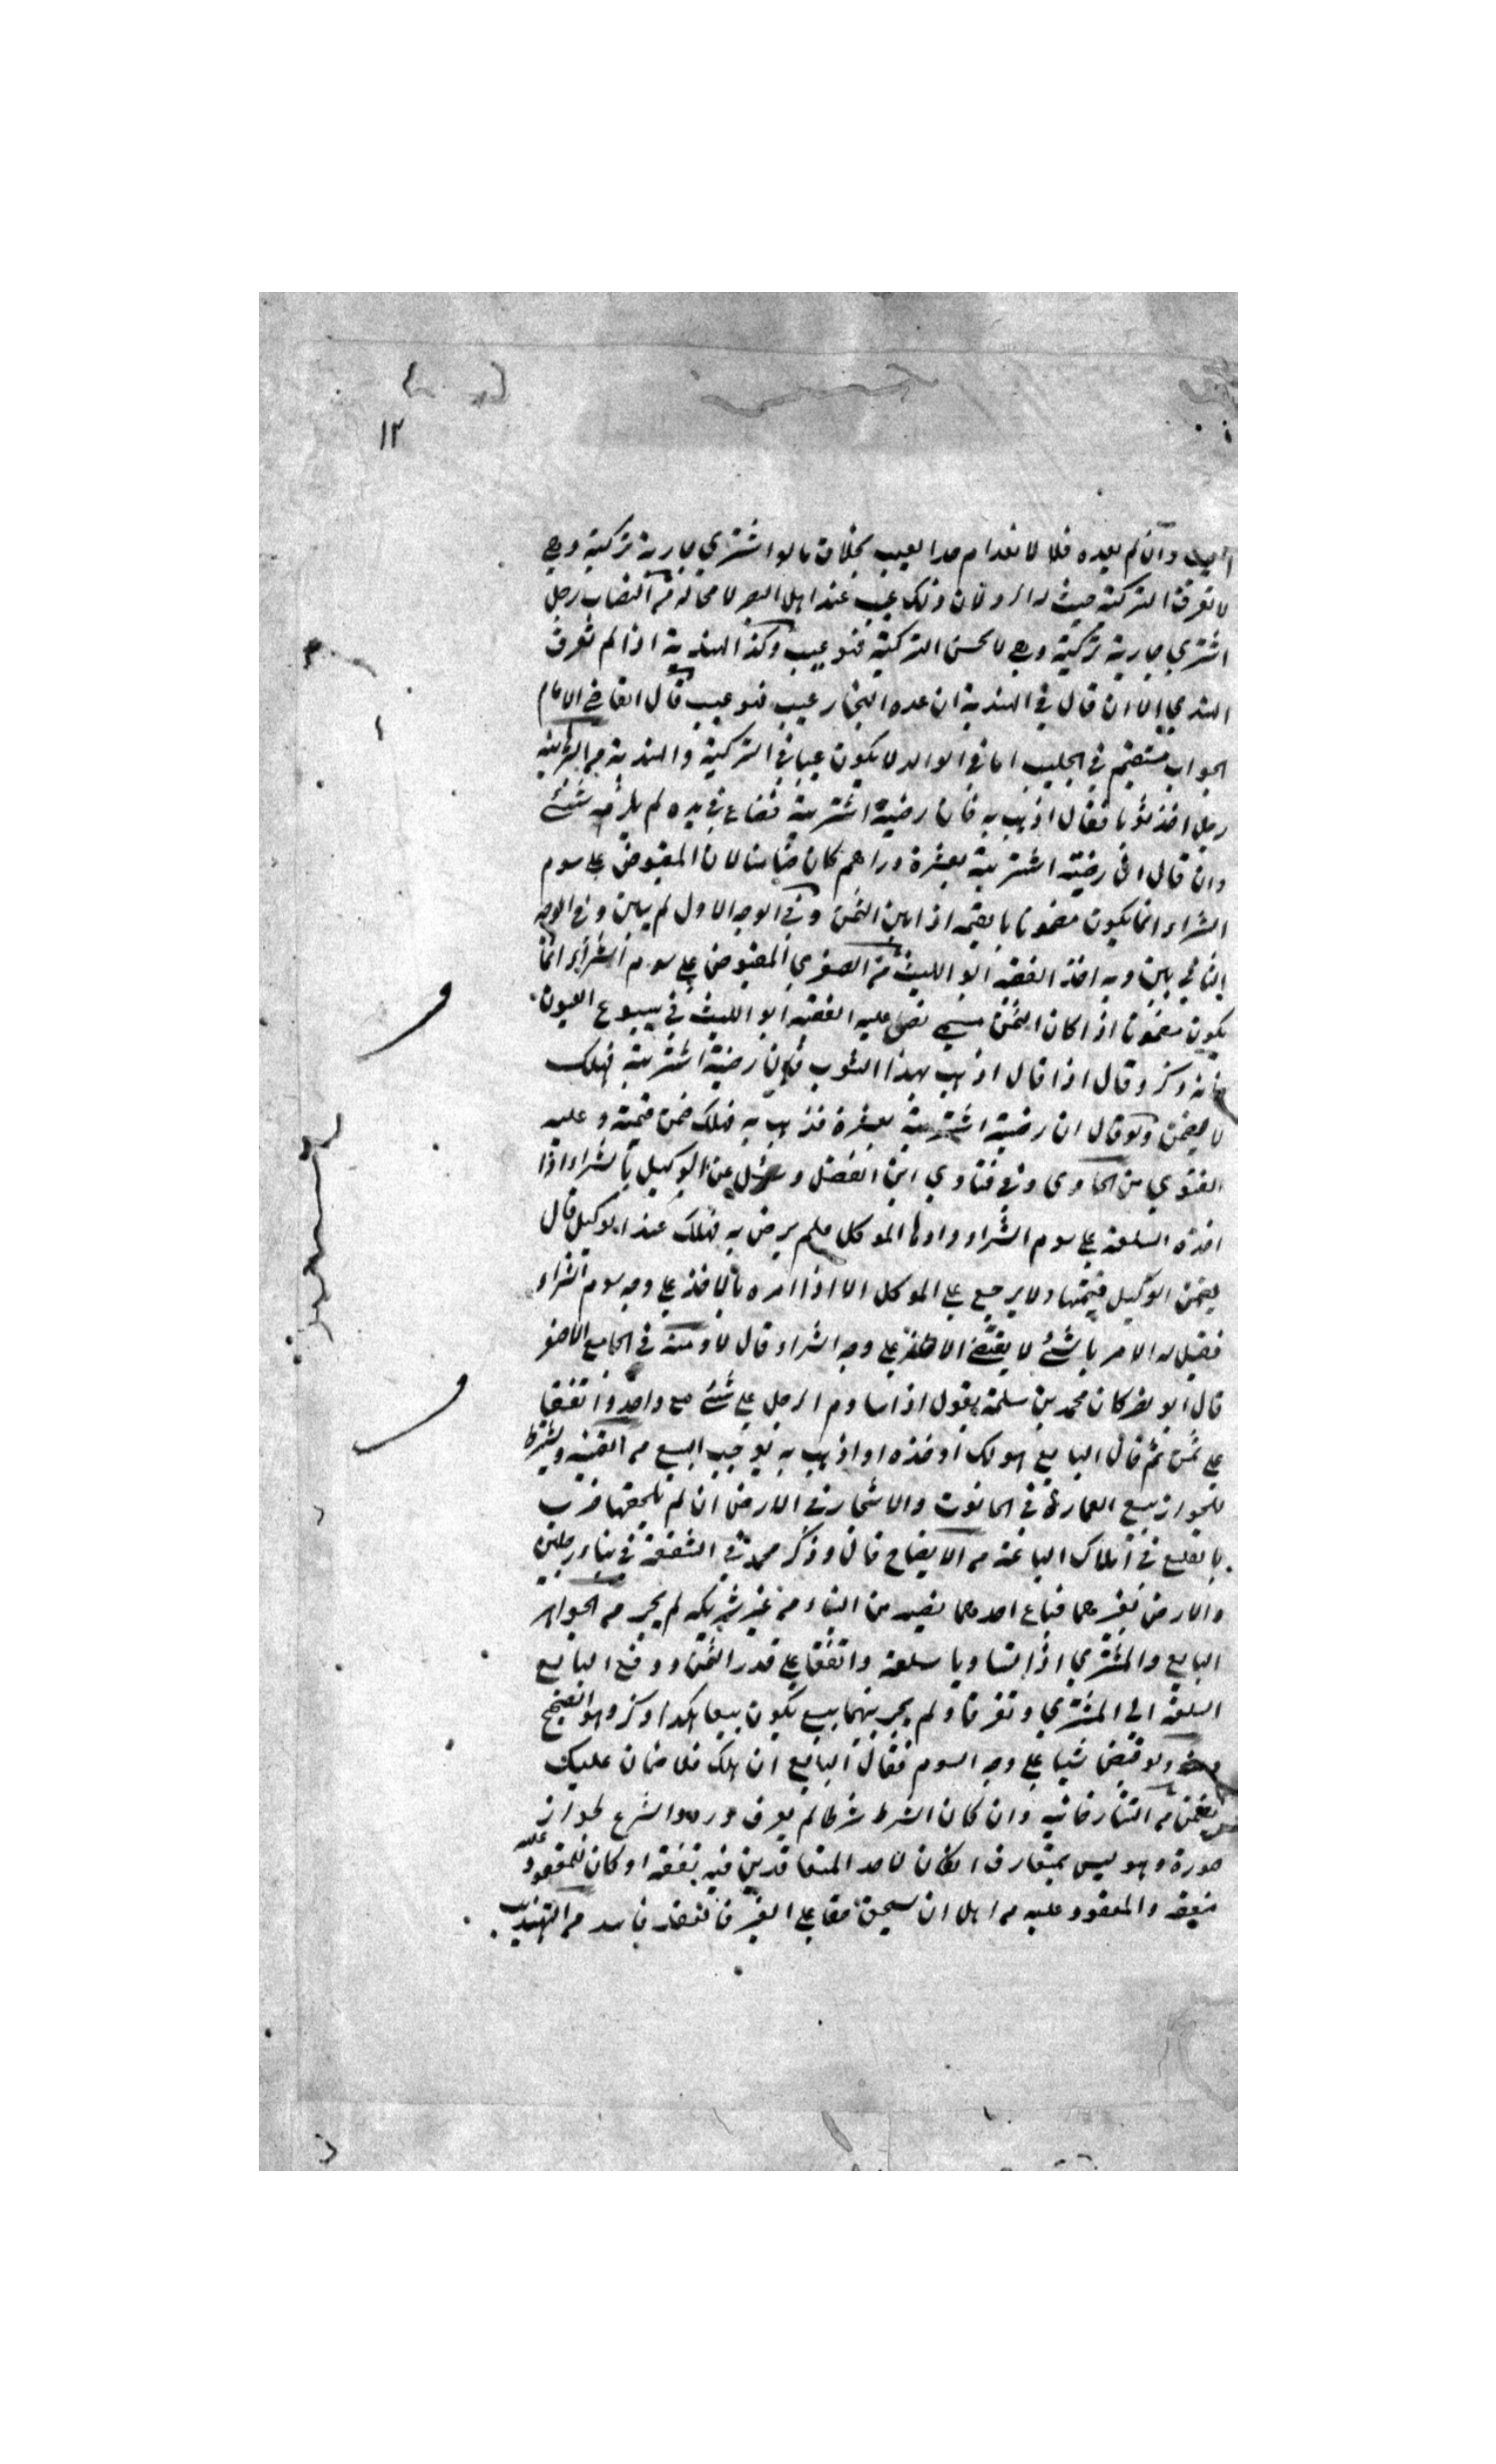 ١٢
وان لم يعده فلا لانعدام حد العيب بخلاف ما لو اشتري جارية تركية وهي
لا تعرف التركية حيث له الرد لان ذلك عيب عند اهل البصر لا محالة من النصاب رجل
اشتري جارية تركية وهي لا تحسن التركية فهو عيب وكذا الهندية اذا لم تعرف
الهندي الا ان قال في الهندية ان عده التجار عيب فهو عيب قال القاضي الامام
الجواب مستقيم في الجليب اما في الوالد لا يكون عيبا في التركية والهندية من
رجل اخذ ثوبا فقال اذهب به فان رضيته اشتريته فضاع في يده لم يلزمه شئ
وان قال ان رضيته اشتريته بعشرة دراهم كان ضامنا لان المقبوض علي سوم
الشراء انما يكون مضمونا بالقيمة اذا بين الثمن وفي الوجه الاول لم يبين وفي الوجه
الثاني بين وبه اخذ الفقيه ابو الليث من الصغري المقبوض علي سوم الشراء انما
يكون مضمونا اذا كان الثمن مسمي نص عليه الفقيه ابو الليث في بيوع العيون
فانه ذكر وقال اذا قال اذهب بهذا الثوب فان رضيته اشتريته فهلك
لا يضمن ولو قال ان رضيته اشتريته بعشرة فذهب به فهلك ضمن قيمته وعليه
الفتوي من الحاوي وفي فتاوي ابن الفضل وسئل عن الوكيل بالشراء اذا
اخذ السلعة علي سوم الشراء واراها الموكل فلم يرض به فهلك عند الوكيل قال
يضمن الوكيل قيمتها ولا يرجع علي الموكل الا اذا امره بالاخذ علي وجه سوم الشراء
فقيل له الامر بالشئ لا يقتضي الاخذ علي وجه الشراء قال لا ومنه في الجامع الاصغر
قال ابو نصر كان محمد بن سلمة يقول اذا ساوم الرجل علي شئ مع واحد واتفقا
علي ثمن ثم قال البايع هو لك او خذه او اذهب به يوجب البيع من القنية ويشترط
لجواز بيع العمارة في الحانوت والاشجار في الارض ان لم يلحقها ضرب
بالقلع في املاك الباعة من الايضاح قال وذكر محمد في الشفعة في بناء رجلين
والارض لغيرهما فباع احدهما نصيبه من البناء من غير شريكه لم يجز من الجواهر
البايع والمشتري اذا تساويا سلعة واتفقا علي قدر الثمن ودفع البايع
السلعة الي المشتري وتفرقا ولم يجر بينهما بيع يكون بيعا هكذا ذكر وهو الصحيح
ولو قبض شيا علي وجه السوم فقال البايع ان هلك فلا ضمان عليك
يضمن من التتارخانيه وان كان الشرط شرطا لم يعرف ورود الشرع بجوازه
صورة وهو ليس بمتعارف ان كان لاحد المتعاقدين فيه منفعة او كان للمعقود عليه
منفعة والمعقود عليه من اهل ان يستحق حقا علي الغير فالعقد فاسد من التهذيب